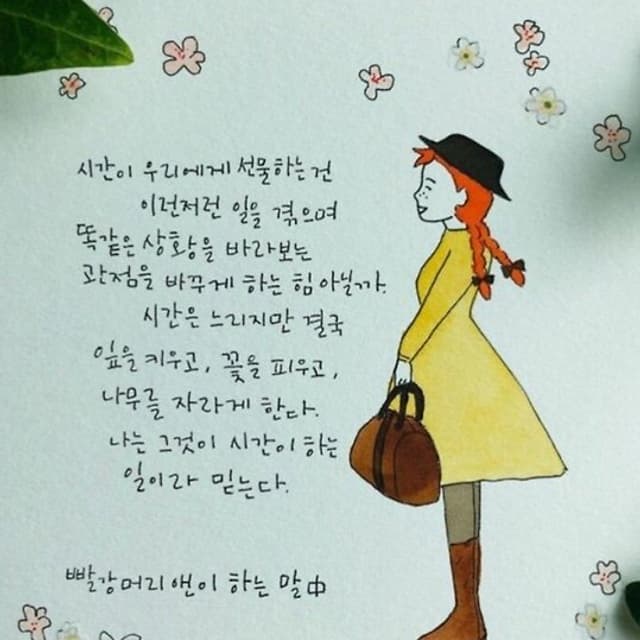 시간이 우리에게 선물하는건
이런저런 일을 겪으며
똑같은 상황을 바라보는
관점을 바꾸게 하는 힘 아닐까.
시간은 느리지만 결국
잎을 키우고, 꽃을 피우고,
나무를 자라게 한다.
나는 그것이 시간이 하는
일이라 믿는다.
빨강머리앤이 하는 말中